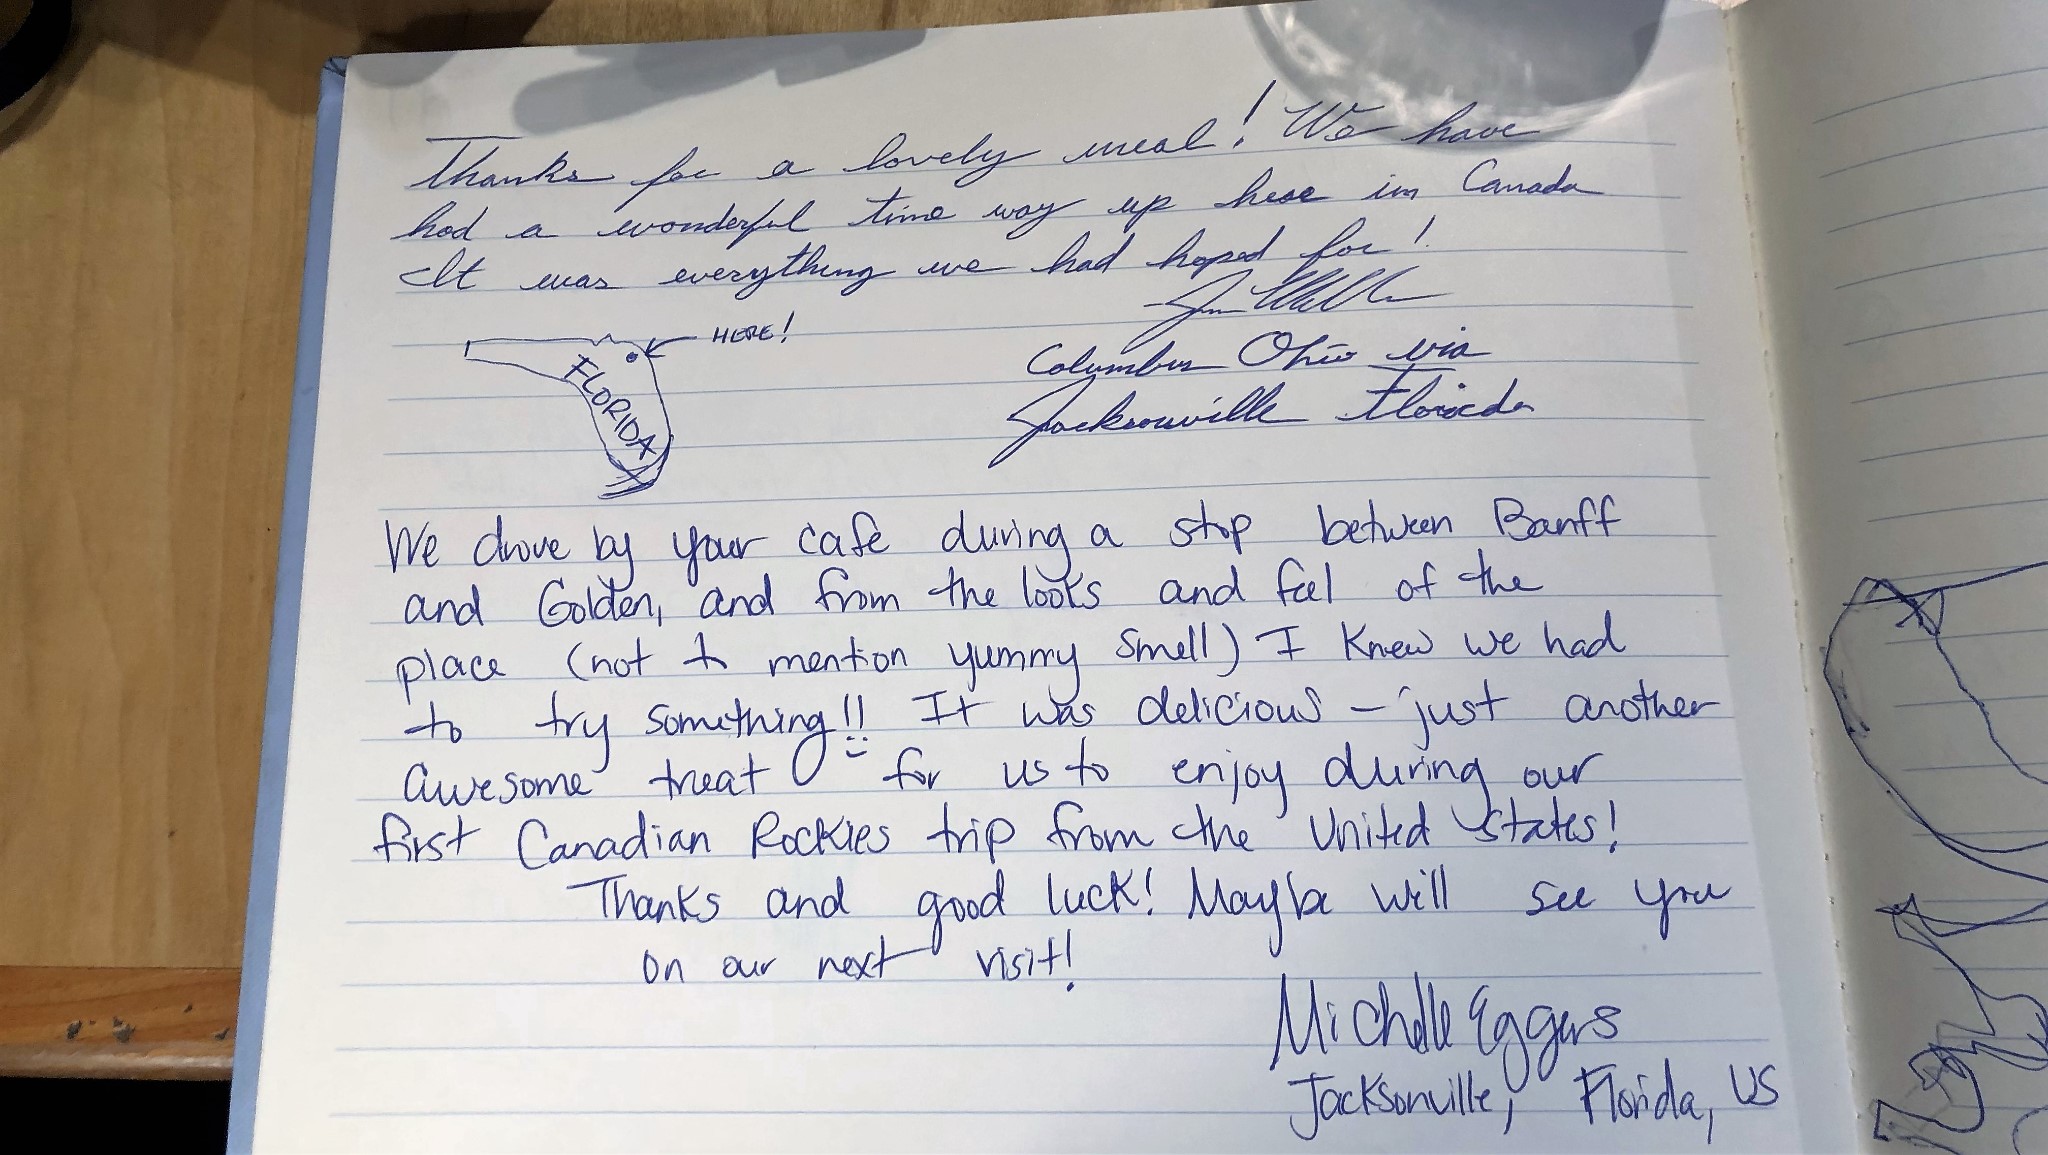 Thanks for a lovely meal! We have
had a wonderful time way up here in Canada
It was everything we had hoped for!
HERE!
FLORIDA
Columbus Ohio via
Jacksonville Florida
We drove by your cafe during a stop between Banff
and Golden, and from the looks and feel of the
place (not to mention yummy smell) I knew we had
to try something!! It was delicious - just another
awesome treat for us to enjoy during our
first Canadian Rockies trip from the United States!
Thanks and good luck! Maybe will see you
on our next visit!
Michelle Eggers
Jacksonville, Florida, US